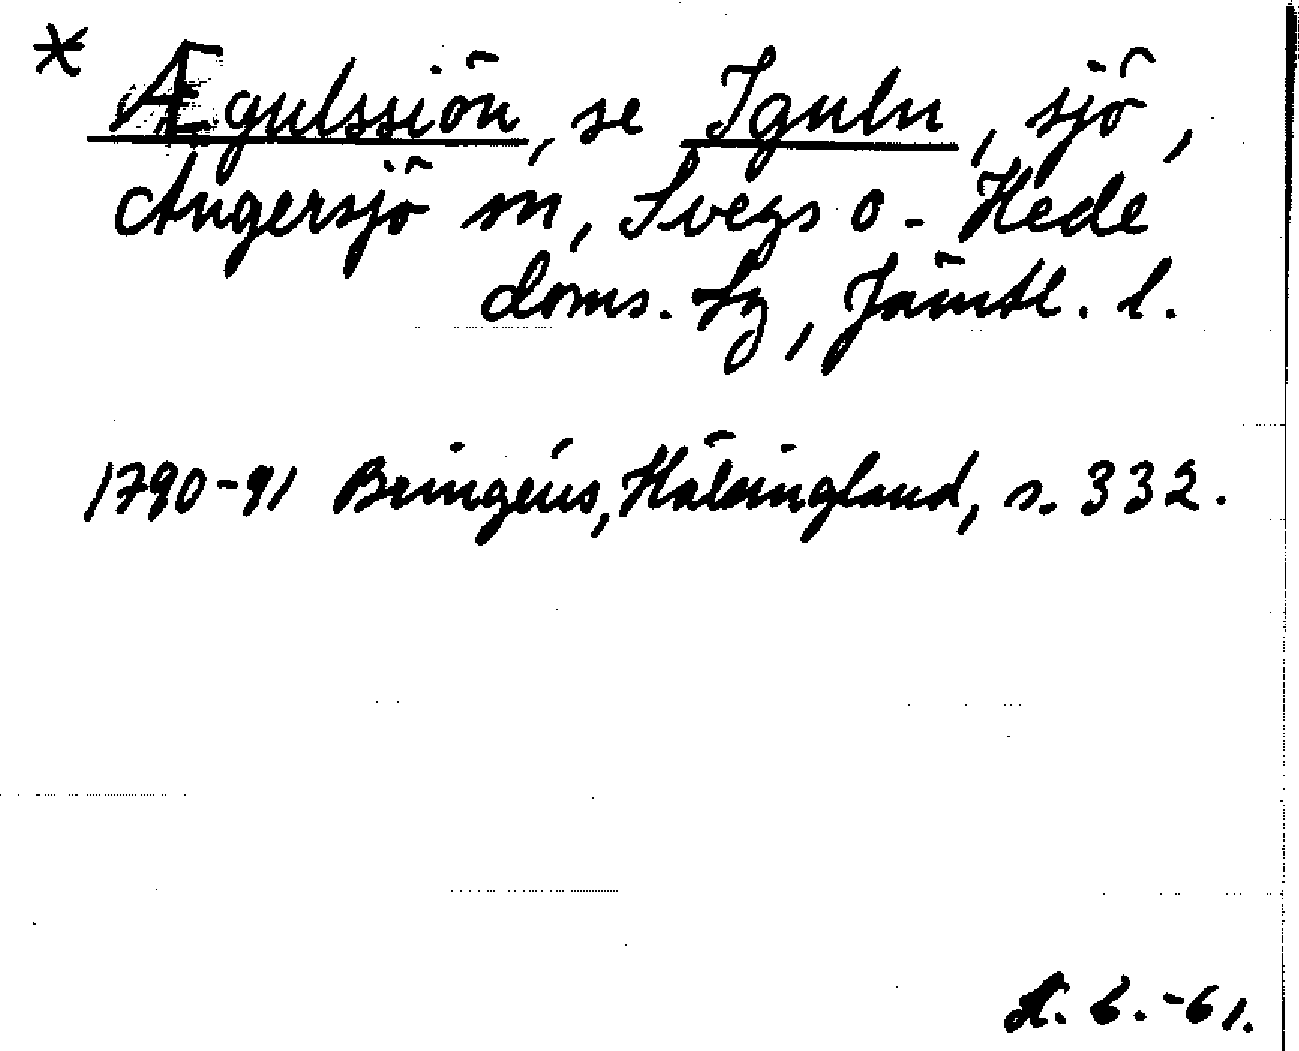 * Ægulssiön, se Iguln, sjö,
Ängersjö sn, Svegs o. Hede
doms. tg, Jämtl. l.
1790-91 Bringéus, Hälsingland, s. 332.
A. b. -61.